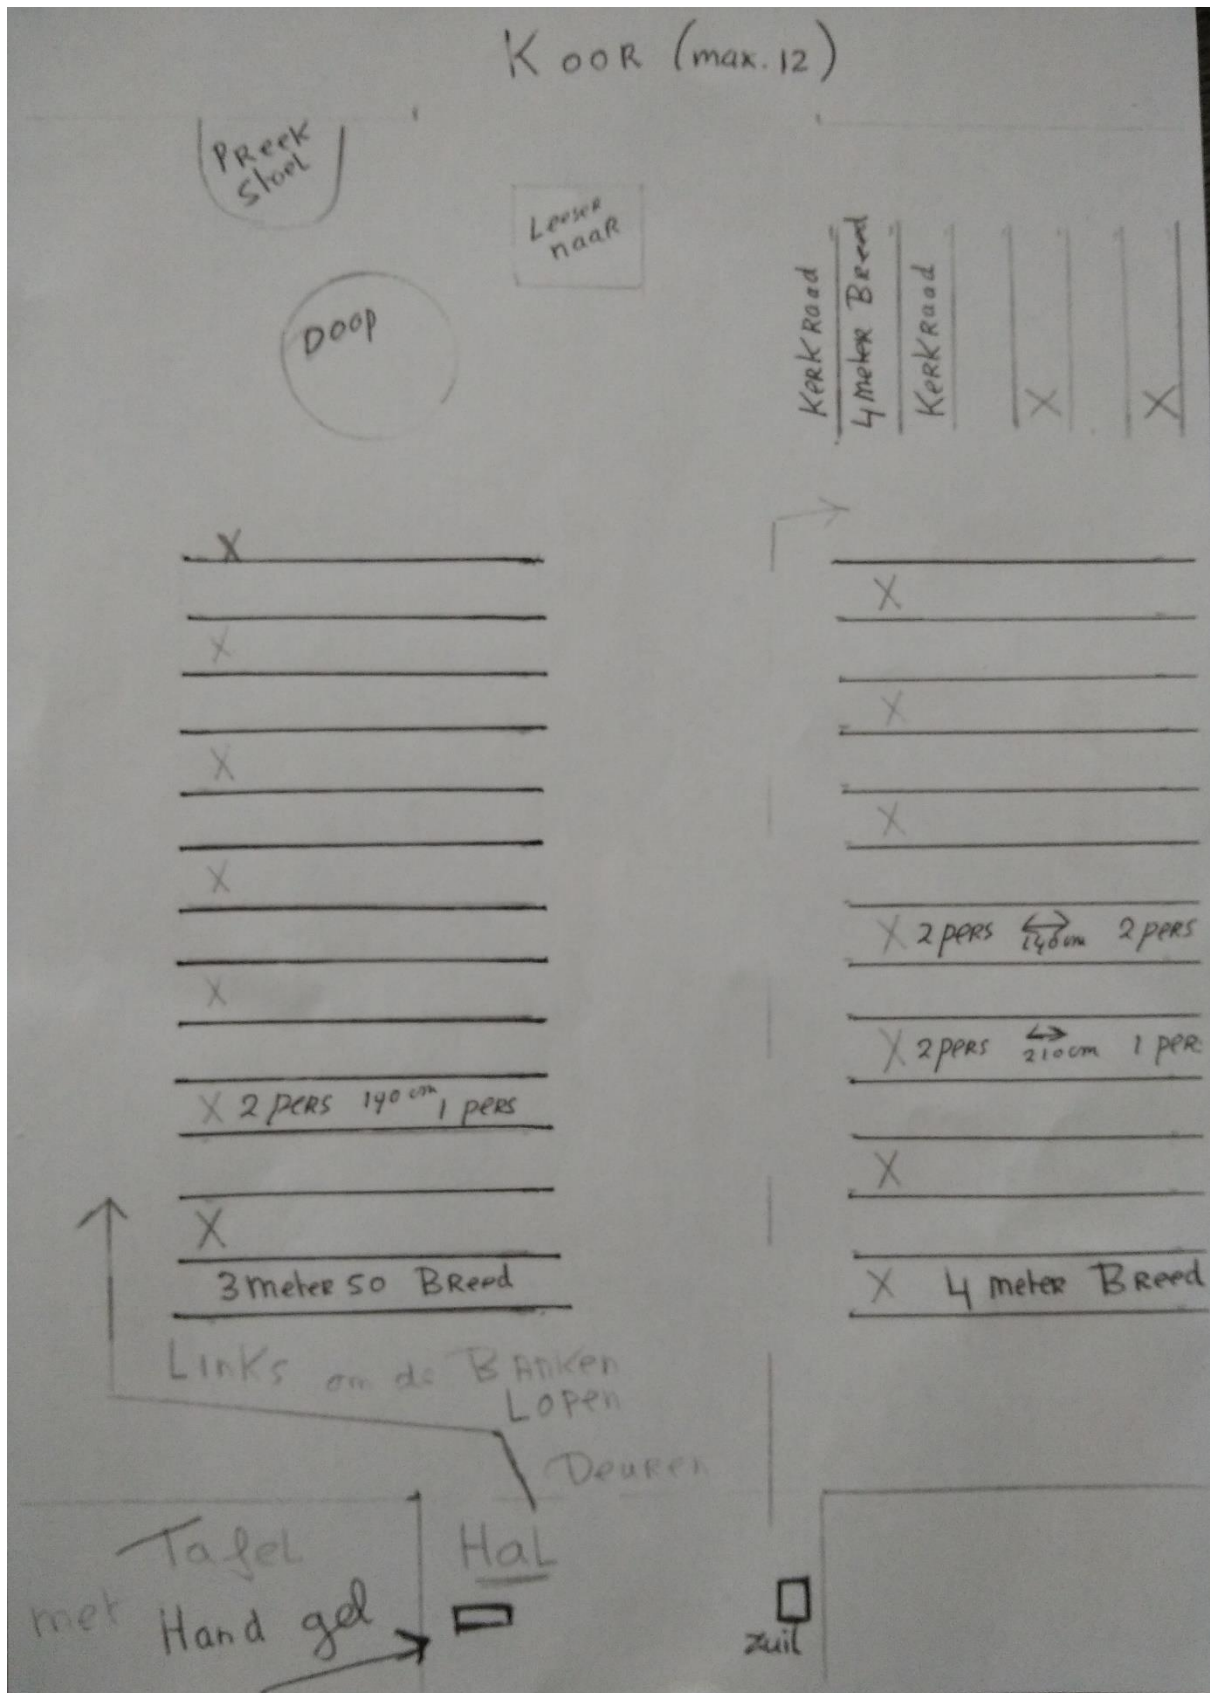 KOOR (max. 12)
PReek
Stoel
Leeser
naaR
Doop
KeRKRaad
4 meter Breed
KeRKRaad
X
X
X
X
X
X
X
X
X
X
X
X 2 peRs 140 cm 2 peRs
X
X 2 peRs 210 cm 1 peR
X 2 peRs 140 cm 1 peRs
X
X
3 meteR 50 BReed
X 4 meteR BReed
Links om de BAnken
Lopen
Deuren
Tafel
met Hand gel
HaL
zuil